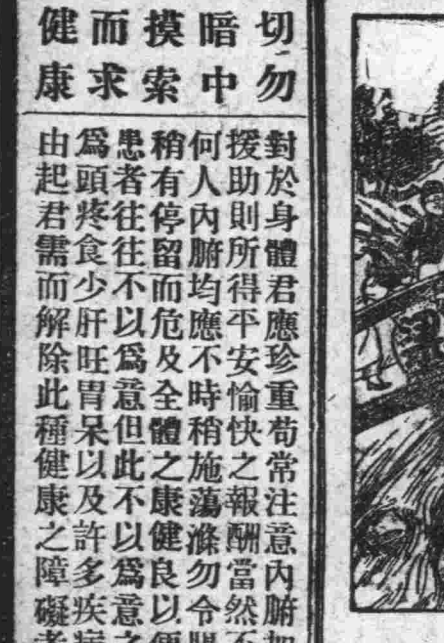 切勿
暗中
摸索
而求
健康
對於身體君應珍重苟常注意內腑
援助則所得平安愉快之報酬當然
何人內腑均應不時稍施蕩滌勿令
稍有停留而危及全體之康健良以
患者往往不以爲意但此不以爲意之
爲頭疼食少肝旺胃呆以及許多疾病
由起君需而解除此種健康之障礙者